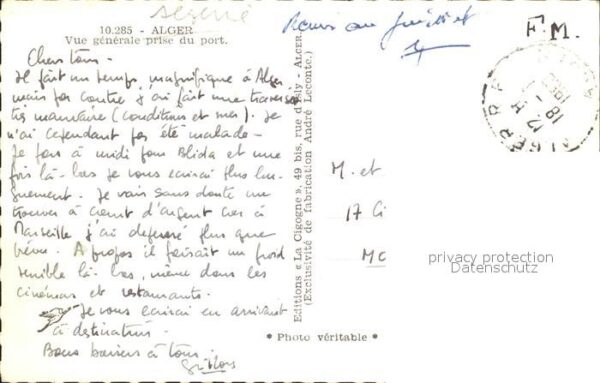 Algérie
10.285 - ALGER
Vue générale prise du port.
Chers tous -
Il fait un temps magnifique à Alger
mais par contre j'ai fait une traversée
très mauvaise (conditions et mer). Je
n'ai cependant pas été malade -
Je pars à midi pour Blida et une
fois là-bas je vous écrirai plus lon-
guement. Je vais sans doute me
trouver à court d'argent car à
Marseille j'ai dépensé plus que
prévu. A propos il faisait un froid
terrible là-bas, même dans les
cinémas et restaurants.
Je vous écrirai en arrivant
à destination.
Bons baisers à tous.
Editions « La Cigogne », 49 bis, rue d'Isly - ALGER.
(Exclusivité de fabrication André Leconte.)
* Photo véritable *
F.M.
ALGER R.P.
12 H
18 - 1
M. et
17 Ci
MC
privacy protection
Datenschutz